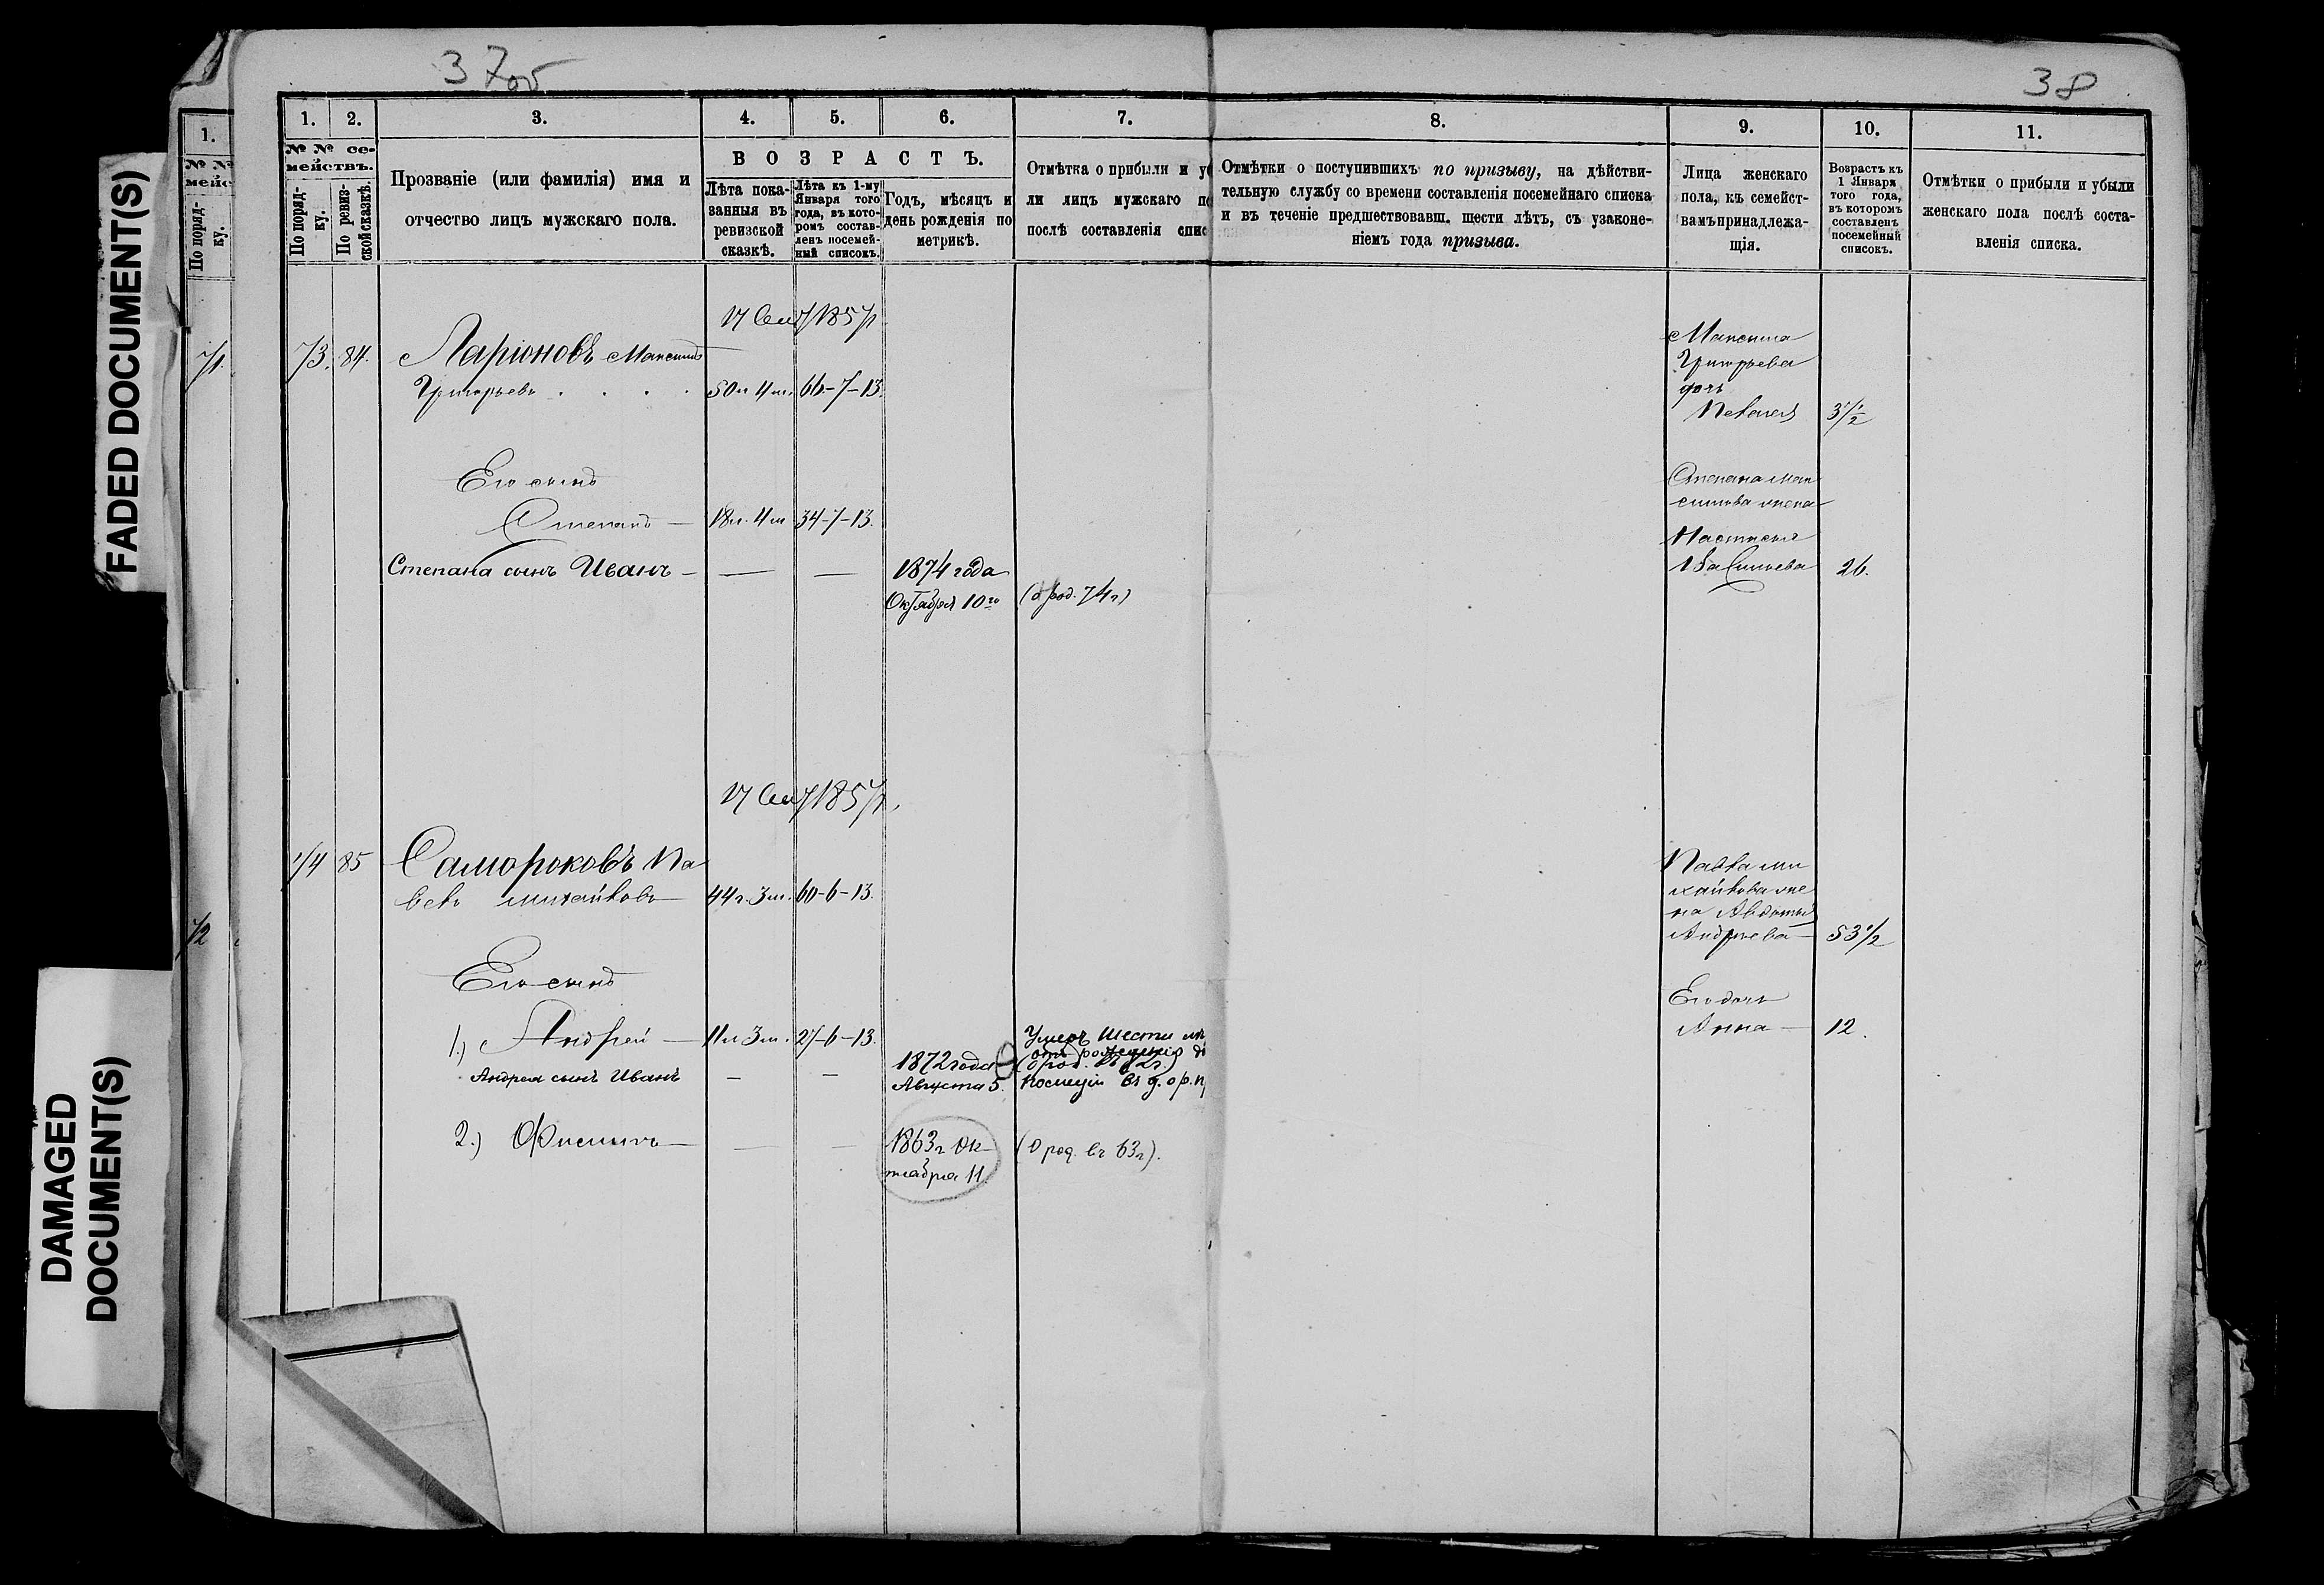 37об
38
FADED DOCUMENT(S)
DAMAGED
DOCUMENT(S)
1.
№ №
мейс
По поряд-
ку.
71.
72
1.
2.
3.
4.
5.
6.
7.
8.
9.
10.
11.
№ № се-
мействъ.
По поряд-
ку.
По ревиз-
ской сказкѣ.
Прозваніе (или фамилія) имя и
отчество лицъ мужскаго пола.
ВОЗРАСТЪ.
Лѣта пока-
занныя въ
ревизской
сказкѣ.
Лѣта къ 1-му
Января того
года, въ кото-
ромъ состав-
ленъ посемей-
ный список.
Годъ, мѣсяцъ и
день рожденія по
метрикѣ.
Отмѣтка о прибыли и у
ли лицъ мужскаго п
послѣ составленія спис
Отмѣтки о поступившихъ по призыву, на дѣйстви-
тельную службу со времени составленія посемейнаго списка
и въ теченіе предшествовавш. шести лѣтъ, съ узаконе-
ніемъ года призыва.
Лица женскаго
пола, къ семейст-
вамъ принадлежа-
щія.
Возрастъ къ
1 Января
того года,
въ которомъ
составленъ
посемейный
списокъ.
Отмѣтки о прибыли и убыли
женскаго пола послѣ соста-
вленія списка.
17 Сен 1857
73. 84. Ларіоновъ Максимъ
Григорьевъ . . . . 50 л 4 м. 66-7-13.
Максима
Григорьева
дочь
Пелагея 3 1/2
Его сынъ
Степанъ — 18 л. 4 м 34-7-13.
Степана Мак
симова жена
Настасья
Васильева 26.
Степана сынъ Иванъ — — — 1874 года
Октября 10го (о род. 74 г)
17 Сен 1857
74 85 Самороковъ Па
велъ Михайловъ 44 г. 3 м. 60-6-13.
Павла Ми
хайлова же
на Авдотья
Андреева — 53 1/2
Его сынъ
1.) Андрей — 11 л 3 м. 27-6-13.
Умеръ шести
отъ рожденія
Его дочь
Анна — 12.
Андрея сынъ Иванъ — — 1872 года
Августа 5.
(о род. въ 72 г.)
2.) Фисинъ — — — 1863 г Ок
тября 11.
(О род. въ 63 г).